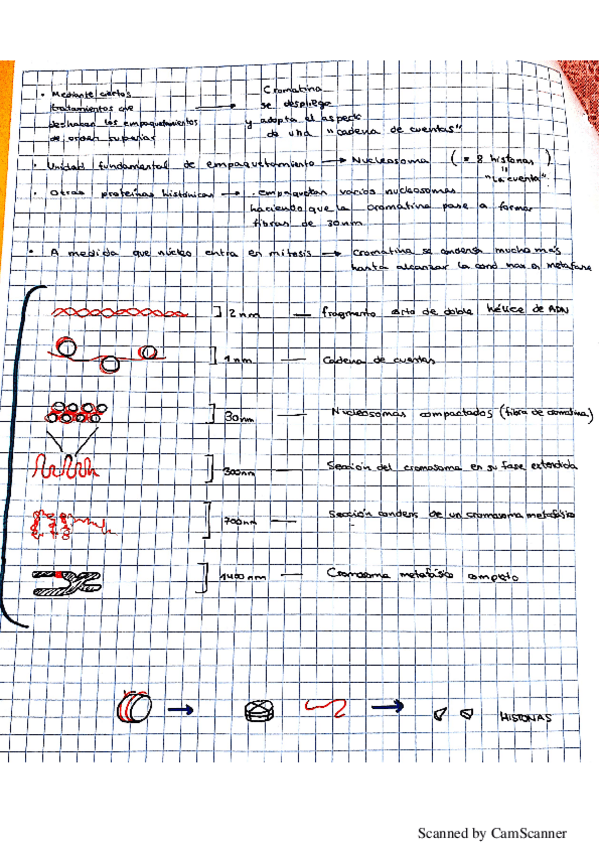 • Mediante ciertos
tratamientos que
deshacen los empaquetamientos
de orden superior
→ Cromatina
se despliega
y adopta el aspecto
de una "cadena de cuentas"
• Unidad fundamental de empaquetamiento → Nucleosoma (= 8 histonas)
"
"La cuenta"
• Otras proteínas histónicas → empaquetan varios nucleosomas
haciendo que la cromatina pase a formar
fibras de 30nm
• A medida que núcleo entra en mitosis → cromatina se condensa mucho más
hasta alcanzar la cond max en metafase
] 2nm — fragmento corto de doble hélice de ADN
] 1nm — Cadena de cuentas
] 30nm — Nucleosomas compactados (fibra de cromatina)
] 300nm — Sección del cromosoma en su fase extendida
] 700nm — Sección condens de un cromosoma metafásico
] 1400nm — Cromosoma metafásico completo
→ → HISTONAS
Scanned by CamScanner